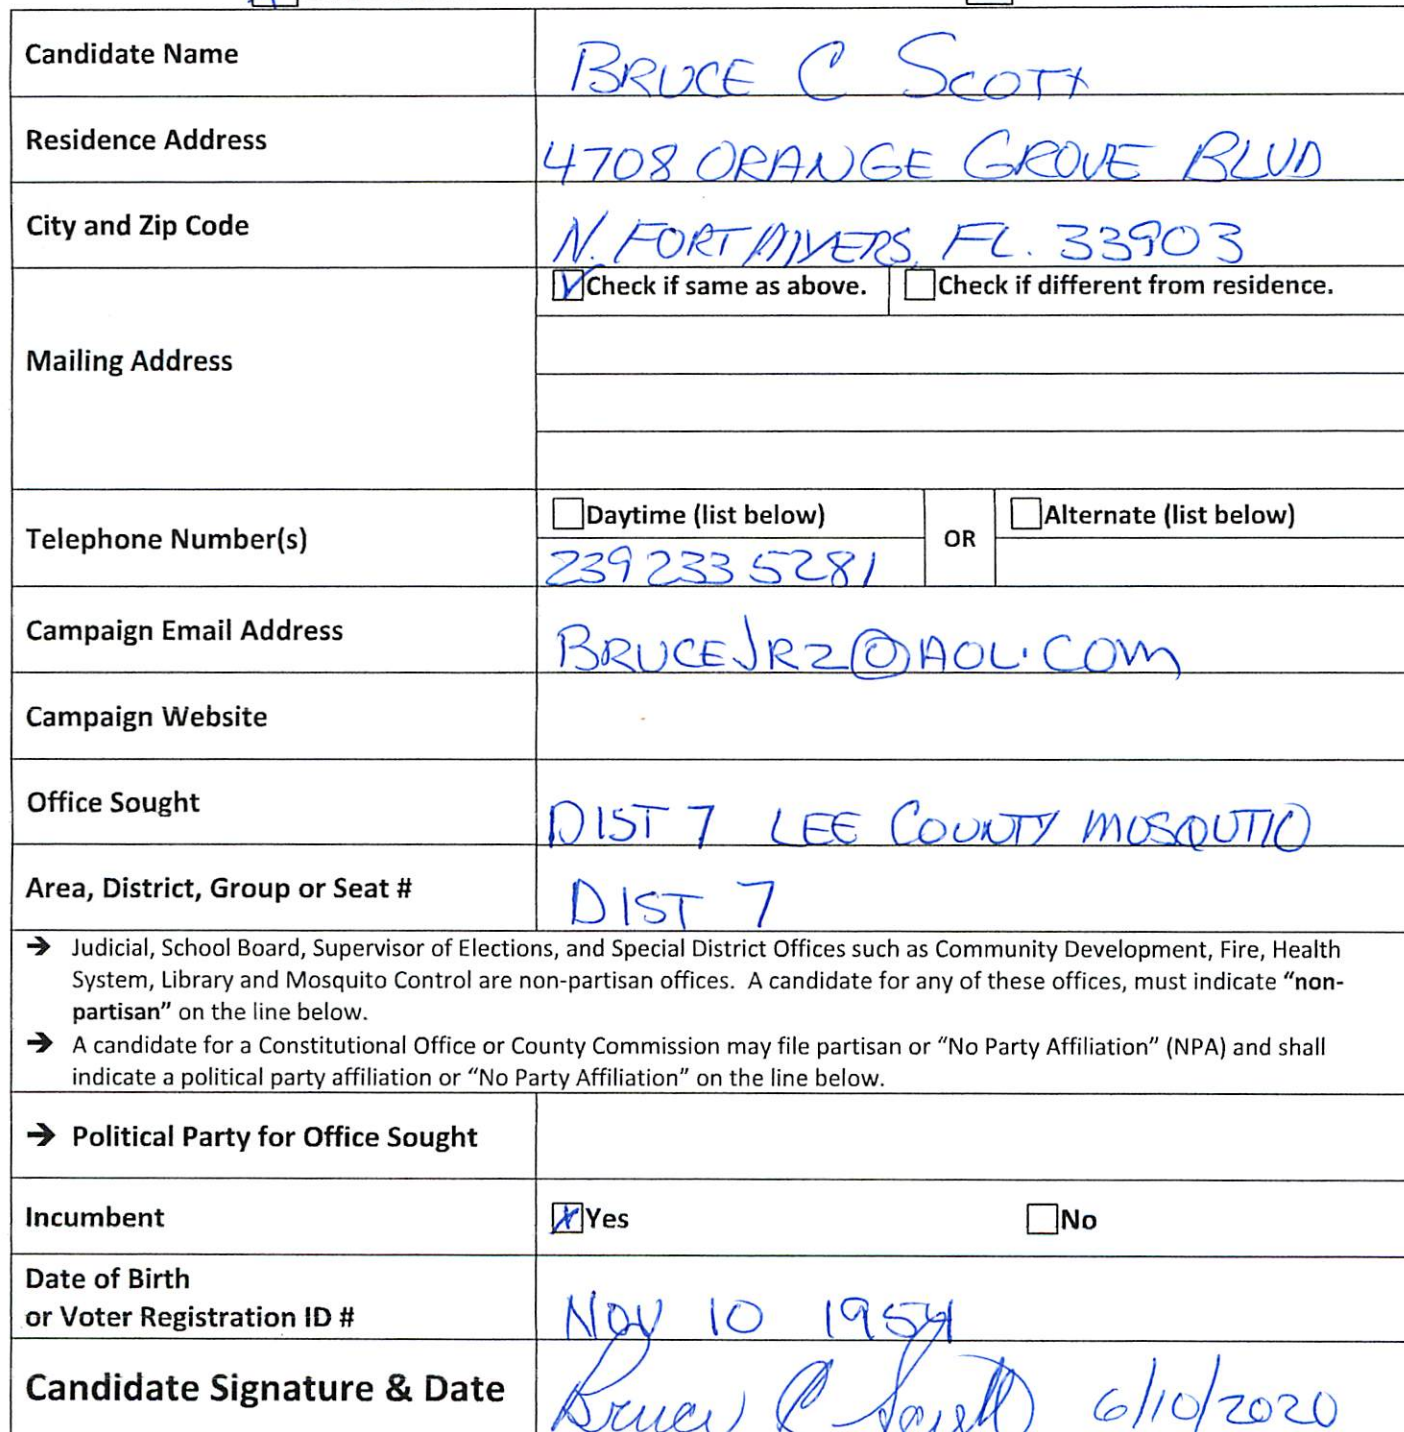 Candidate Name
BRUCE C SCOTT
Residence Address
4708 ORANGE GROVE BLVD
City and Zip Code
N. FORT MYERS, FL. 33903
Check if same as above.
Check if different from residence.
Mailing Address
Telephone Number(s)
Daytime (list below)
OR
Alternate (list below)
239 233 5281
Campaign Email Address
BRUCEJR2@AOL.COM
Campaign Website
Office Sought
DIST 7 LEE COUNTY MOSQUTIO
Area, District, Group or Seat #
DIST 7
→ Judicial, School Board, Supervisor of Elections, and Special District Offices such as Community Development, Fire, Health
System, Library and Mosquito Control are non-partisan offices. A candidate for any of these offices, must indicate “non-
partisan” on the line below.
→ A candidate for a Constitutional Office or County Commission may file partisan or “No Party Affiliation” (NPA) and shall
indicate a political party affiliation or “No Party Affiliation” on the line below.
→ Political Party for Office Sought
Incumbent
Yes
No
Date of Birth
or Voter Registration ID #
NOV 10 1954
Candidate Signature & Date
Bruce C Scott 6/10/2020